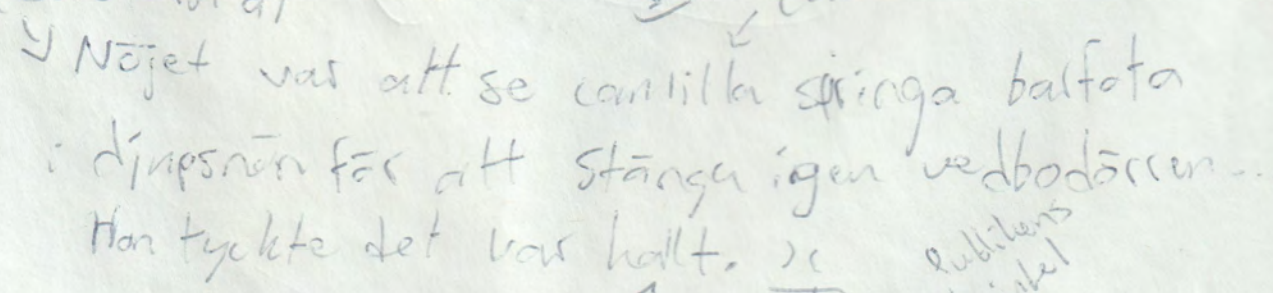 Nöjet var att se camilla springa barfota
i djupsnön för att stänga igen vedbodörren...
Hon tyckte det var hallt. :(
Publikens